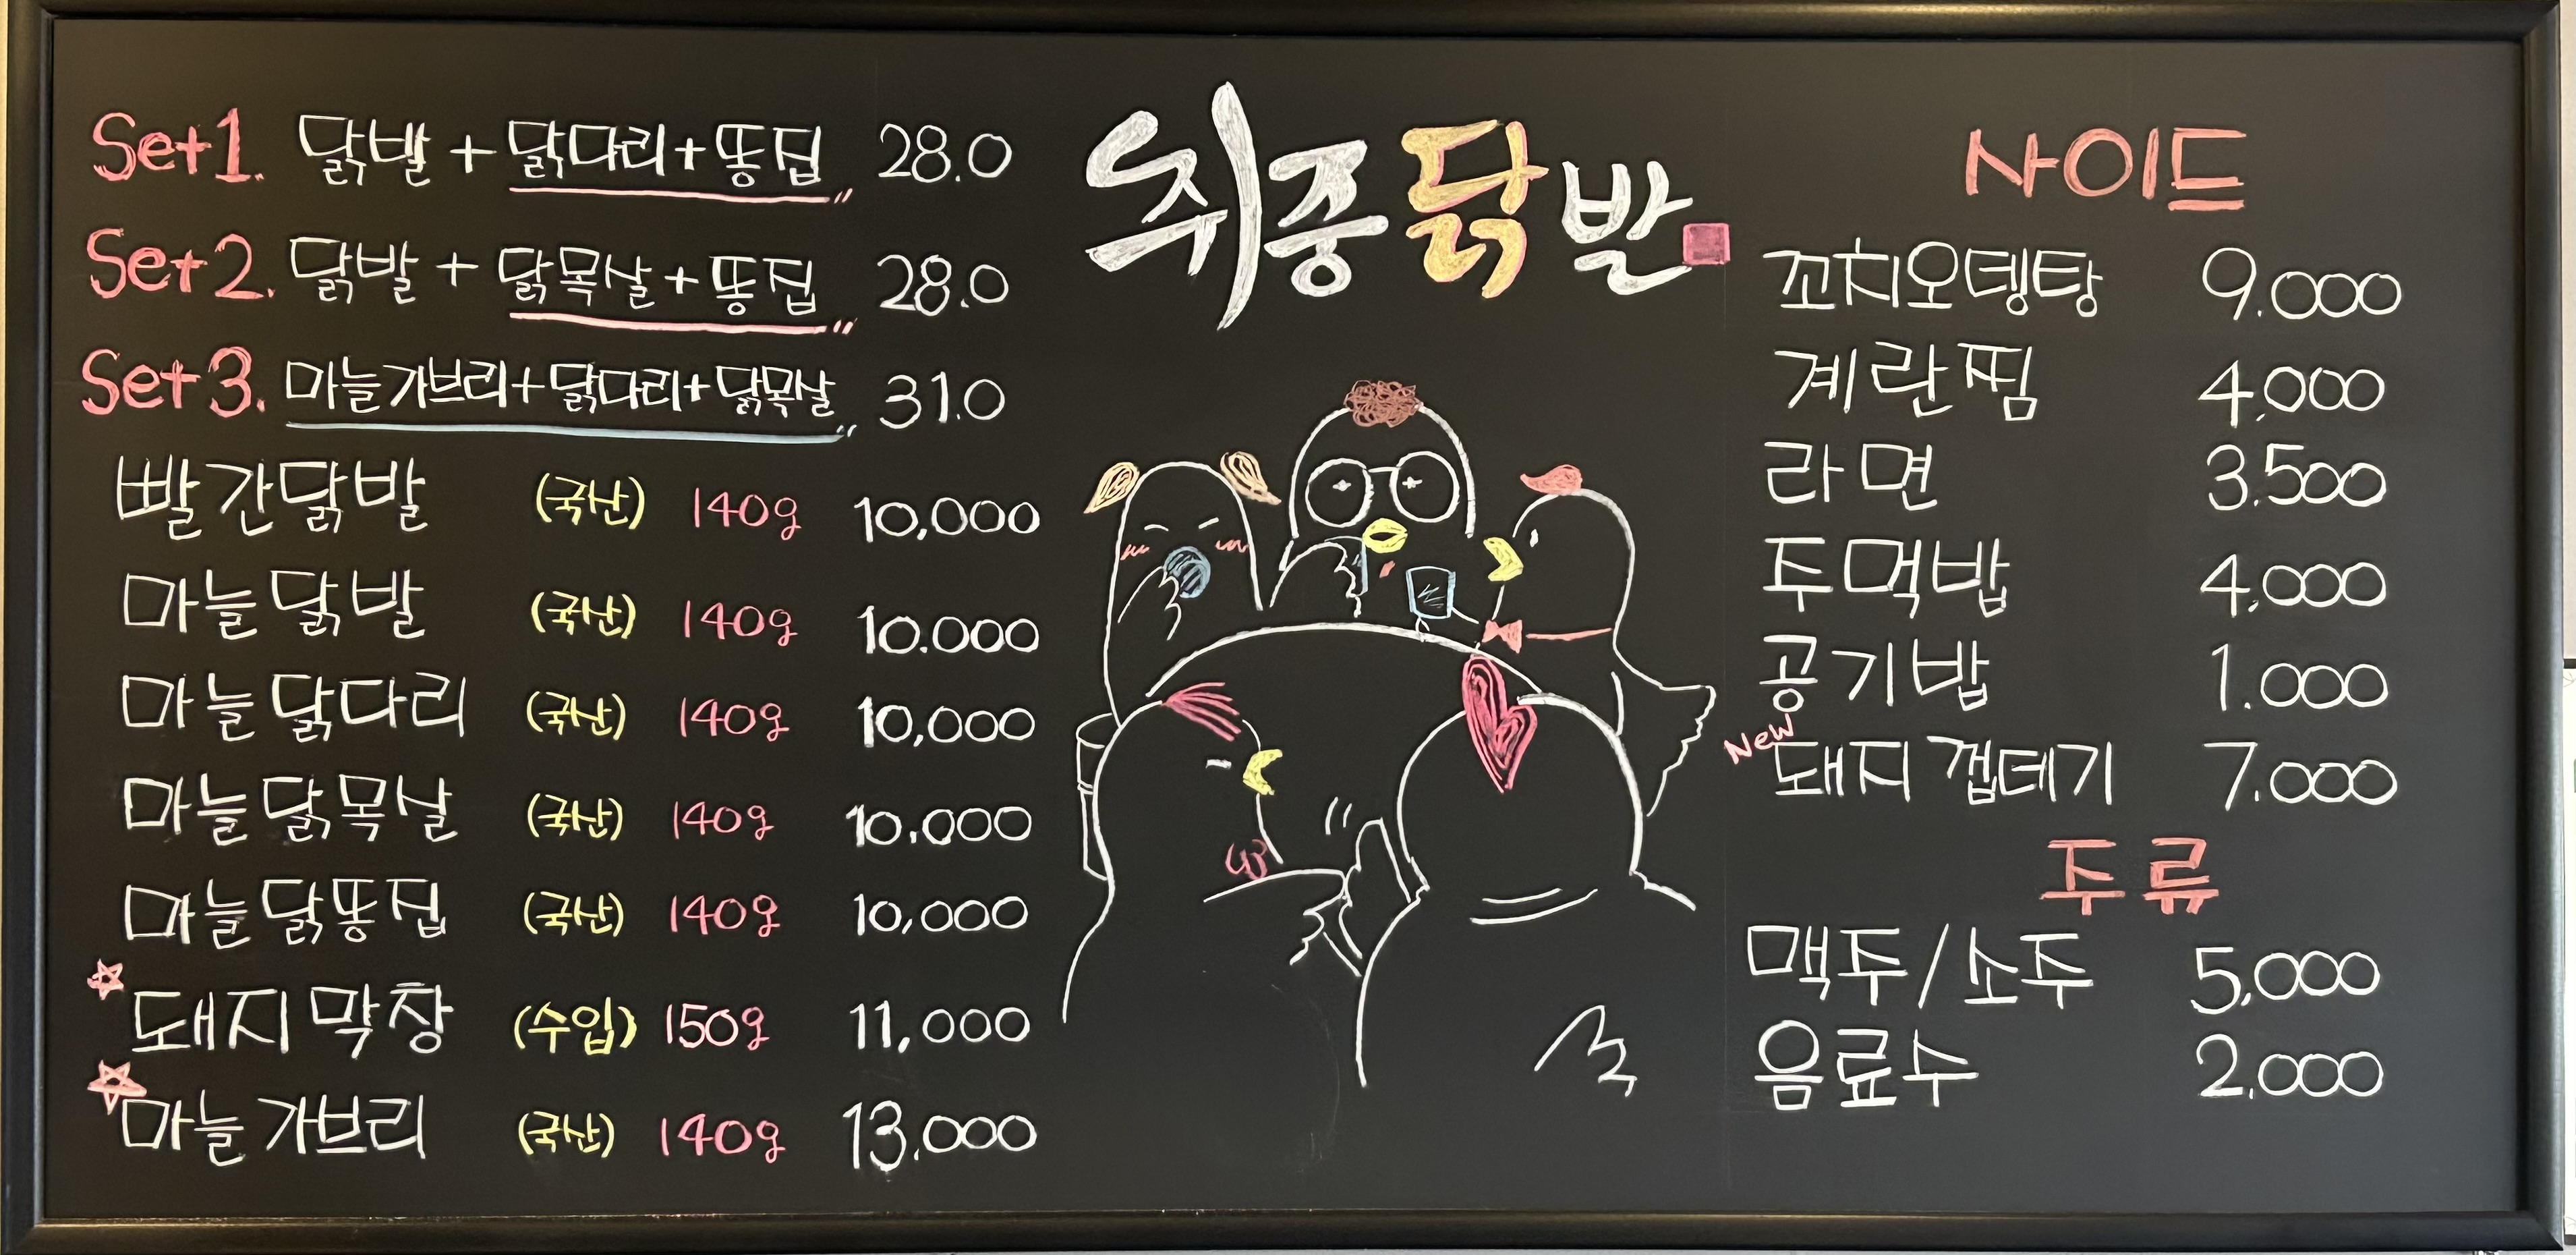 Set1. 닭발 + 닭다리+똥집 28.0
Set2. 닭발 + 닭목살+똥집 28.0
Set3. 마늘가브리+닭다리+닭목살 31.0
빨간닭발 (국산) 140g 10,000
마늘닭발 (국산) 140g 10.000
마늘닭다리 (국산) 140g 10,000
마늘닭목살 (국산) 140g 10.000
마늘닭똥집 (국산) 140g 10,000
돼지막창 (수입) 150g 11,000
마늘가브리 (국산) 140g 13.000
쉬중닭발
사이드
꼬치오뎅탕 9.000
계란찜 4,000
라면 3.500
주먹밥 4,000
공기밥 1.000
New 돼지껍데기 7.000
주류
맥주/소주 5,000
음료수 2.000